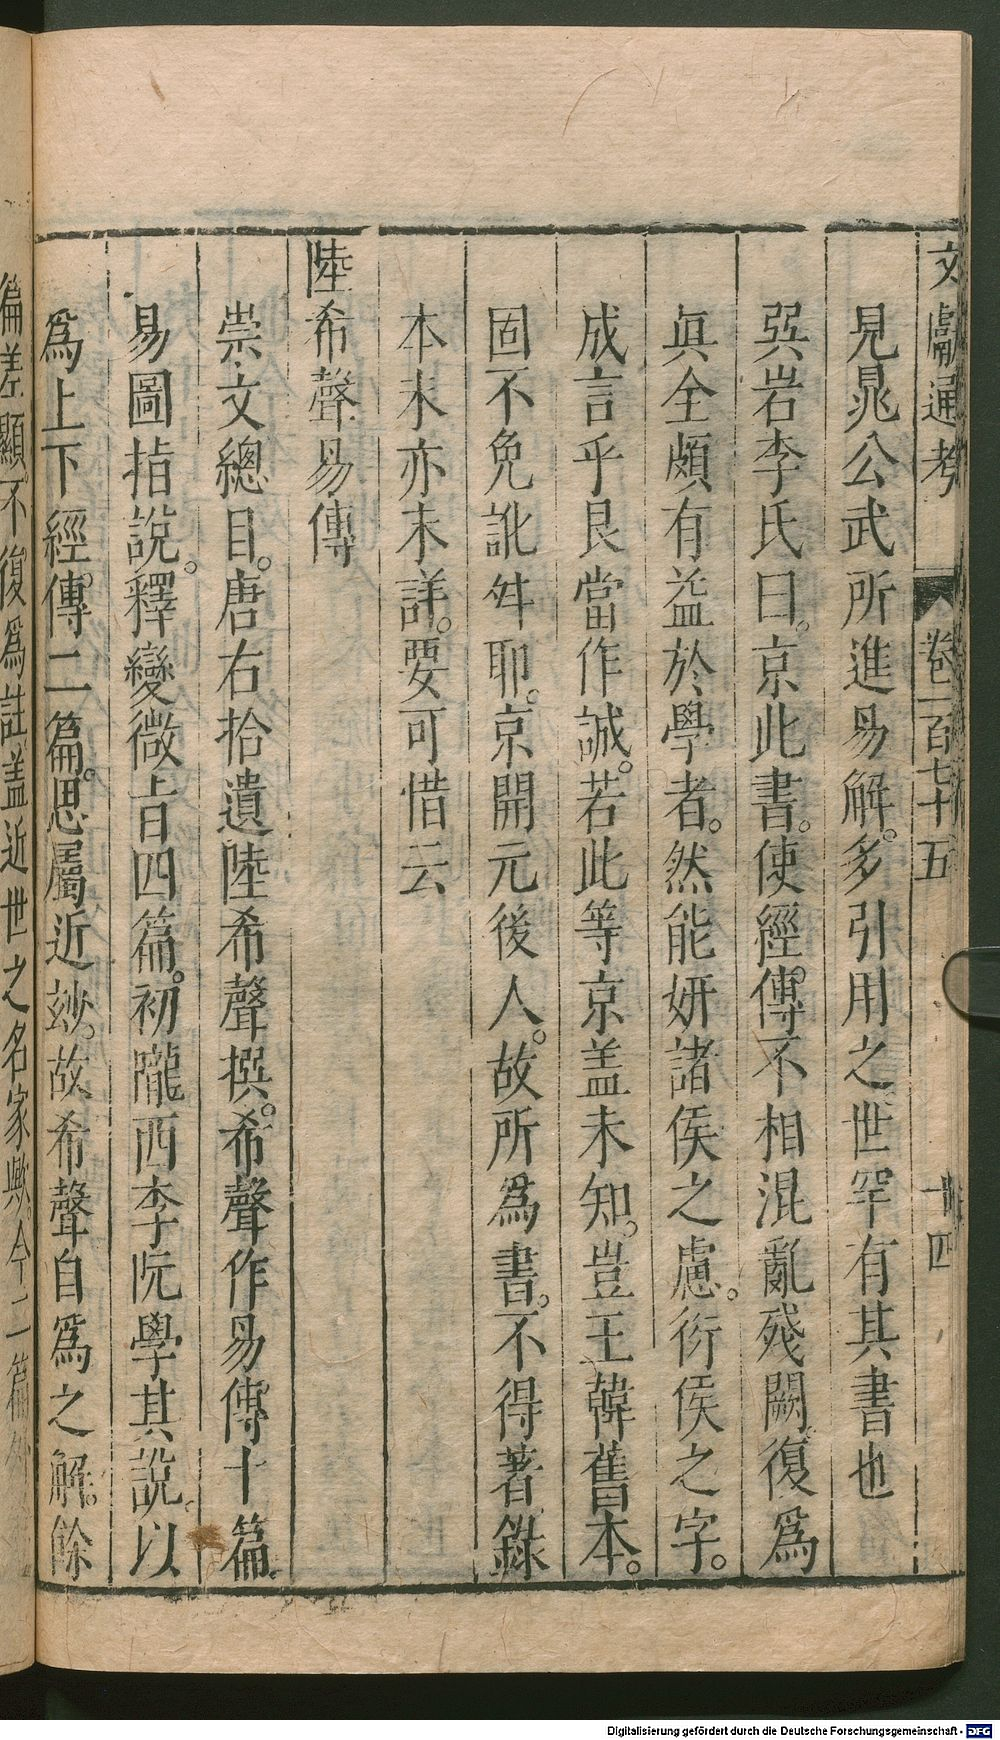 文獻通考 卷一百七十五 十四
見晁公武所進易解。多引用之。世罕有其書也
巽岩李氏曰。京此書。使經傳不相混亂殘闕。復爲
眞全。頗有益於學者。然能妍諸侯之慮。衍侯之字。
成言乎艮當作誠。若此等京盖未知。豈王韓舊本。
固不免訛舛耶。京開元後人。故所爲書。不得著錄
本末亦未詳。要可惜云
陸希聲易傳
崇文總目。唐右拾遺陸希聲撰。希聲作易傳十篇。
易圖指說。釋變微旨四篇。初隴西李阮學其說。以
爲上下經。傳二篇。思屬近妙。故希聲自爲之解。餘
篇差顯不復爲註盖近世之名家歟。今二篇
Digitalisierung gefördert durch die Deutsche Forschungsgemeinschaft - DFG